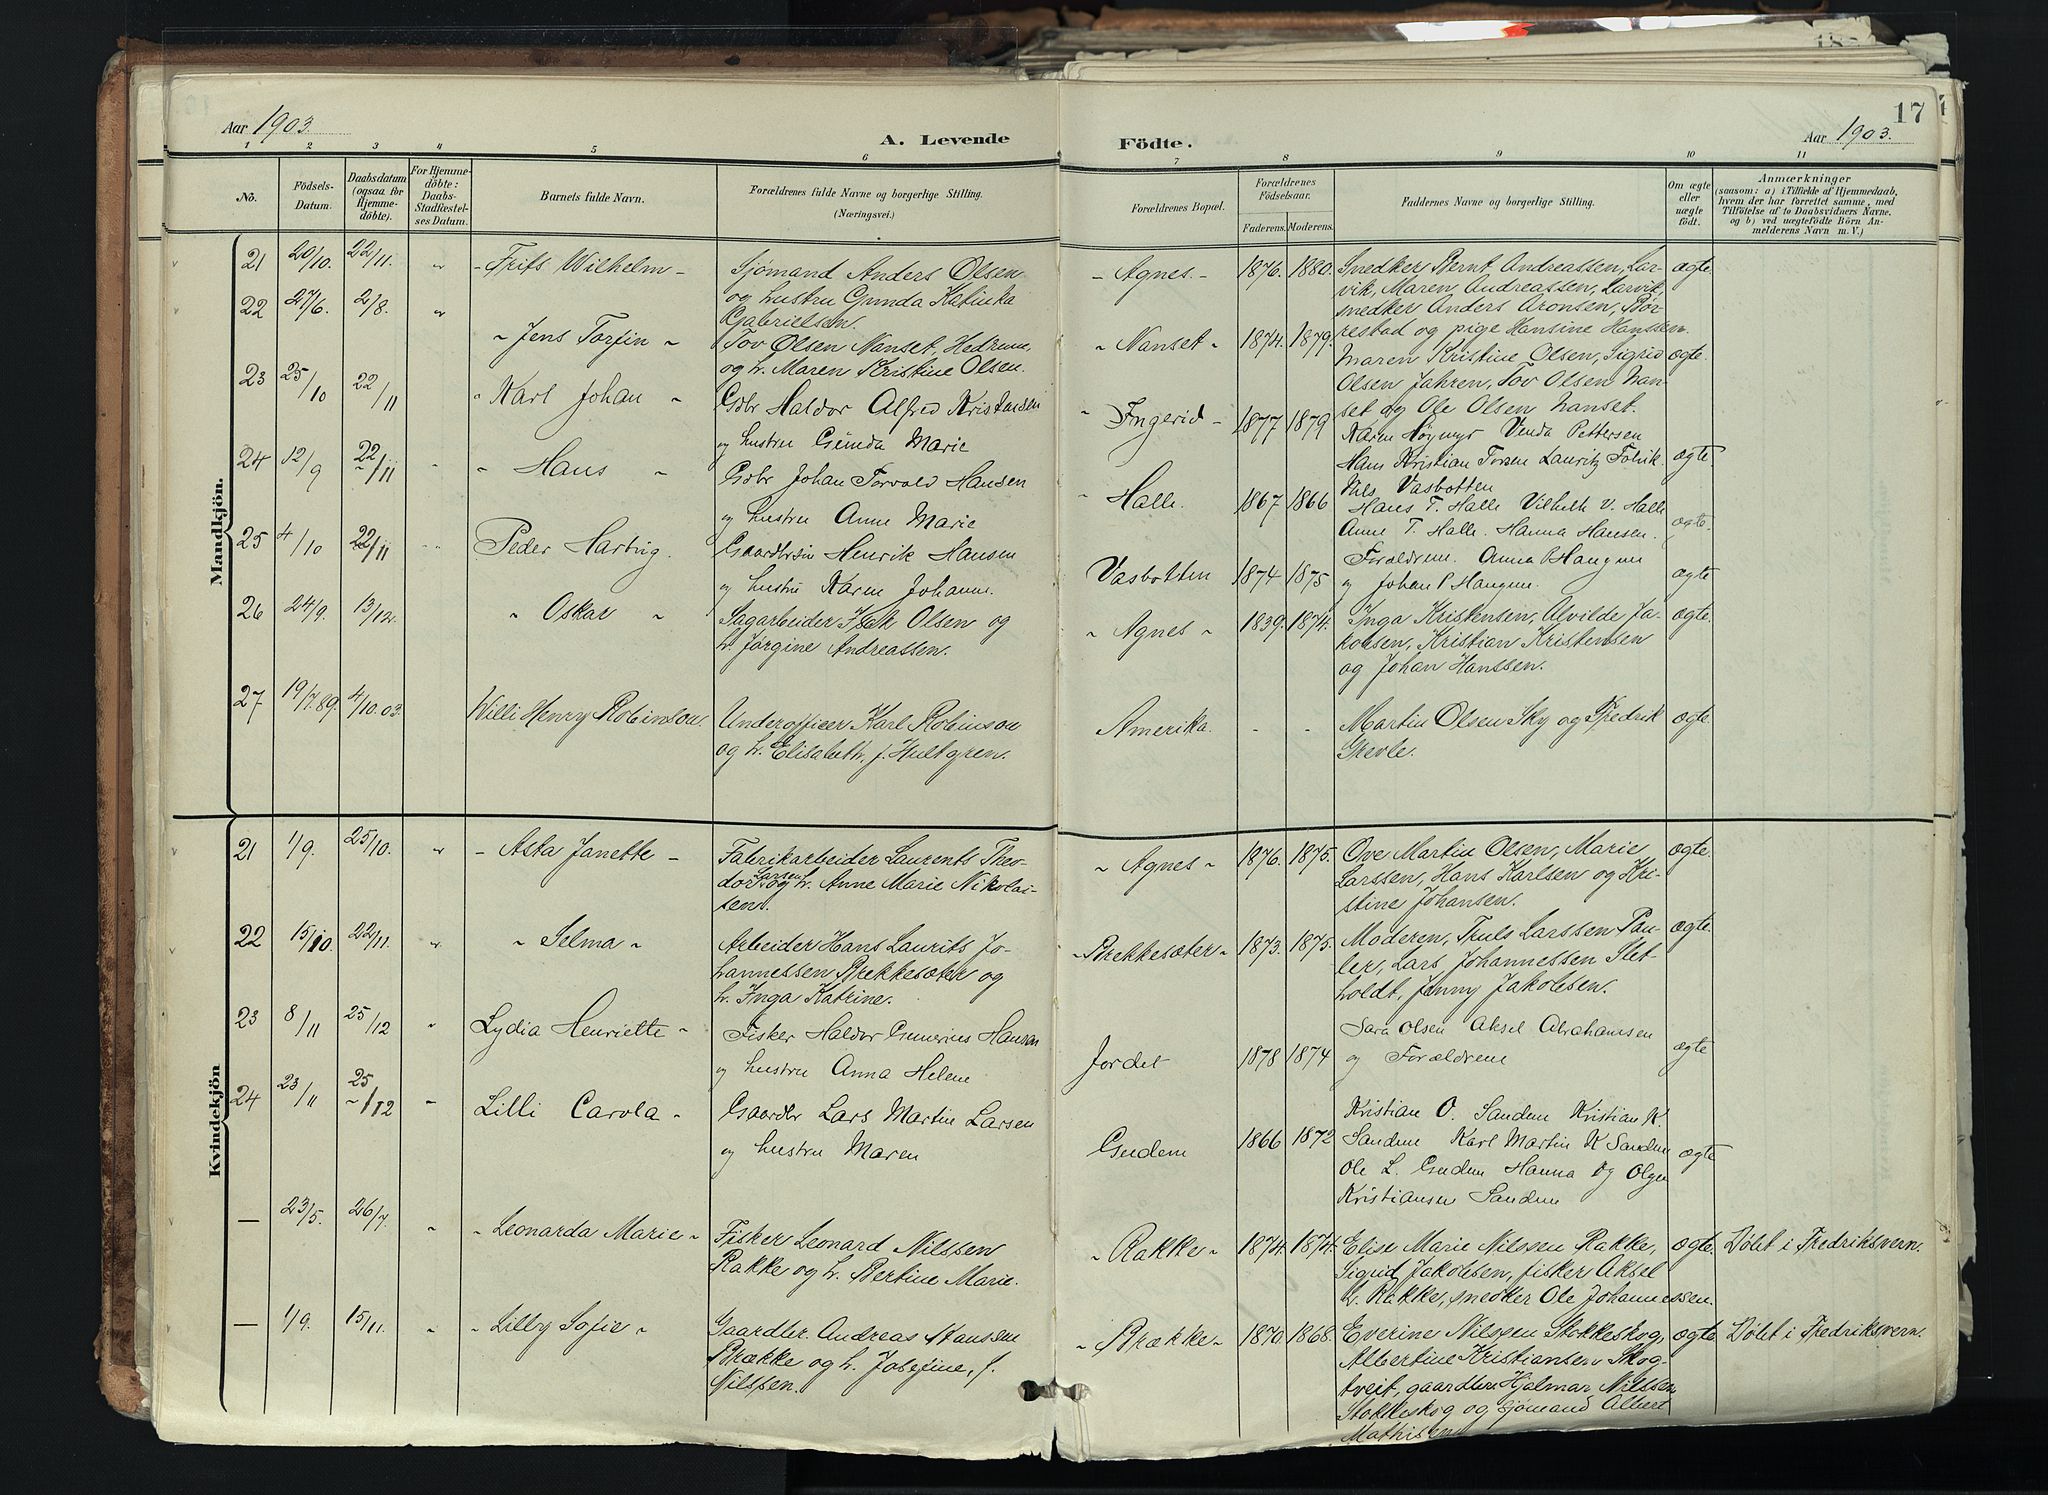 17
Aar 1903.
A. Levende Födte.
Aar 1903.
1 2 3 4 5 6 7 8 9 10 11
No.
Födsels-
Datum.
Daabsdatum
(ogsaa for
Hjemme-
döbte).
For Hjemme-
döbte:
Daabs-
Stadfæstel-
ses Datum.
Barnets fulde Navn.
Forældrenes fulde Navne og borgerlige Stilling.
(Næringsvei.)
Forældrenes Bopæl.
Forældrenes
Födselsaar.
Faderens. Moderens.
Faddernes Navne og borgerlige Stilling.
Om ægte
eller
uægte
født.
Anmærkninger
(saasom: a) i Tilfælde af Hjemmedaab,
hvem der har forrettet samme, med
Tilföielse af to Daabsvidners Navne,
og b) ved uægtefödte Börn An-
melderens Navn m. V.)
Mandkjön.
21 20/10. 22/11. " - Frits Wilhelm - Sjømand Anders Olsen
og hustru Gunda Katinka
Gabrielsen.
- Agnes. - 1876. 1880. Snedker Bernt Andreassen, Lar-
vik, Maren Andreassen, Larvik,
snedker Anders Aronsen, Bør-
restad og pige Hansine Hanssen.
ægte.
22 27/6. 2/8. " " Jens Torfin " Tov Olsen Nanset, Hedrum,
og h. Maren Kristine Olsen.
" Nanset " 1874. 1879. Maren Kristine Olsen, Sigrid
Olsen Jahren, Tov Olsen Nan-
set og Ole Olsen Nanset.
ægte.
23 25/10 22/11 " Karl Johan " Gbr Haldor Alfred Kristensen
og hustru Gunda Marie
" Ingerid - 1877 1879 Karen Høymyr Venda Pettersen
Hans Kristian Torsen Lauritz Folvik.
Nils Vasbotten
ægte.
24 12/9 22/11 " " Hans " Gbr Johan Torvald Hansen
og hustru Anne Marie
" Halle. 1867 1866 Hans T. Halle Vilhelm V. Halle
Anne T. Halle. Hanna Hansen.
ægte.
25 4/10 22/11 " Peder Hartvig. Gaardbr Henrik Hansen
og hustru Karen Johanne.
Vasbotten 1874 1875 Forældrene. Anna P Haugene
og Johan P Haugene.
ægte
26 24/9. 13/12. " Oskar " Sagarbeider Isak Olsen og
h. Jørgine Andreassen.
" Agnes " 1839. 1874. Inga Kristensen, Alvilde Ja-
kobsen, Kristian Kristensen
og Johan Hanssen.
ægte.
27 19/7.89. 4/10.03. Willi Henry Robinson. Underofficer Karl Robinson
og h. Elisabeth, f. Hultgren.
Amerika. - - Martin Olsen Sky og Fredrik
Grevle.
ægte.
Kvindekjön
21 1/9. 25/10. " - Asta Janette - Fabrikarbeider Laurents Theo-
dor Larsen og h. Anne Marie Nikolai-
sen.
" Agnes " 1876. 1875. Ove Martin Olsen, Marie
Larssen, Hans Karlsen og Kri-
stine Johansen.
ægte.
22 15/10. 22/11. " " Selma " Arbeider Hans Laurits Jo-
hannessen Brekkesæter og
h. Inga Katrine.
" Brekkesæter " 1873. 1875. Moderen, Truls Larssen Pau-
ler, Lars Johannessen Slet-
holdt, Jenny Jakobsen.
ægte.
23 8/11 25/12 " Lydia Henriette " Fisker Haldor Gunerius Hansen
og hustru Anna Helene
Jordet 1878 1874 Sara Olsen Aksel Abrahamsen
og Forældrene
ægte
24 23/11 25/12 " Lilli Carola " Gaardbr Lars Martin Larsen
og hustru Maren
Gudem 1866 1872 Kristian O. Sandem Kristian K.
Sandem Karl Martin K Sandem
Ole L. Gudem Hanna og Olga
Kristiansen Sandem
ægte
— 23/5. 26/7. " " Leonarda Marie " Fisker Leonard Nilssen
Rakke og h. Bertine Marie.
" Rakke " 1874. 1874. Elise Marie Nilssen Rakke,
Sigrid Jakobsen, fisker Aksel
L. Rakke, snedker Ole Johannessen.
ægte. Døbt i Fredriksvern.
— 1/9. 15/11. " " Lilly Sofie " Gaardbr. Andreas Hanssen
Brække og h. Josefine, f.
Nilssen.
" Brække " 1870 1868. Everine Nilssen Stokkeskog,
Albertine Kristiansen Skog-
tveit, gaardbr. Hjalmar Nilssen
Stokkeskog og sjømand Albert
Mathisen
ægte Døbt i Fredriksvern.